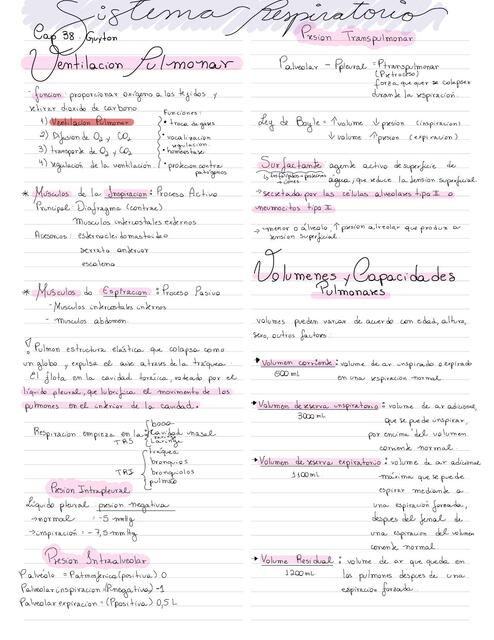 Sistema Respiratorio
Cap 38 - Guyton
Ventilacion Pulmonar
- funcion: proporcionar oxigeno a los tejidos y
retirar dioxido de carbono
1) Ventilacion Pulmonar
2) Difusion de O2 y CO2
3) transporte de O2 y CO2
4) regulacion de la ventilacion
Funciones:
• troca de gases
• vocalizacion
regulacion
• homeostase
• proteccion contra
patógenos
* Músculos de la Inspiracion: Proceso Activo
Principal: Diafragma (contrae)
Musculos intercostales externos
Acesorios: esternocleidomastoideo
serrato anterior
escaleno
* Músculos de Expiracion: Proceso Pasivo
- Musculos intercostales internos
- Musculos abdomen
! Pulmon estructura elástica que colapsa como
un globo y expulsa el aire atraves de la tráquea.
El flota en la cavidad torácica, rodeado por el
líquido pleural, que lubrifica el movimiento de los
pulmones en el interior de la cavidad.
Respiracion empieza en la
boca
cavidad nasal
faringe
laringe
TRS
TRI
tráquea
bronquios
bronquiolos
pulmao
Presion Intrapleural
Líquido pleural presion negativa
→ normal = -5 mmHg
→ inspiración = -7,5 mmHg
Presion Intraalveolar
Palveolo = Patmosferica (positiva) 0
Palveolar inspiracion = (Pnegativa) -1
Palveolar expiracion = (Ppositiva) 0,5 L
Presion Transpulmonar
Palveolar - Ppleural = Ptranspulmonar
(Pretroceso)
fuerza que quer se colapser
durante la respiración.
Ley de Boyle = ↑volume ↓presion (inspiracion)
↓volume ↑presion (expiracion)
Surfactante: agente activo de superficie de
agua, que reduce la tension superficial.
→ secretada por las células alveolares tipo II o
neumocitos tipo II
→ menor o álveolo, ↑ presion alveolar que produz a
tensión superficial.
Volumenes y Capacidades
Pulmonares
volumes pueden variar de acuerdo con edad, altura,
sexo, outros factores.
→ Volumen corriente: volume de aire inspirado o expirado
500 mL en una respiración normal
→ Volumen de reserva inspiratorio: volume de ar adicional,
3000 mL que se puede inspirar,
por encima del volumen
corriente normal.
→ Volumen de reserva expiratorio: volume de ar adicional
1100 mL máxima que se puede
espirar mediante a
una espiración forzada,
despues del final de
una espiracion del volumen
corriente normal
→ Volume Residual: volume de ar que queda en
1200 mL los pulmones despues de una
espiración forzada.